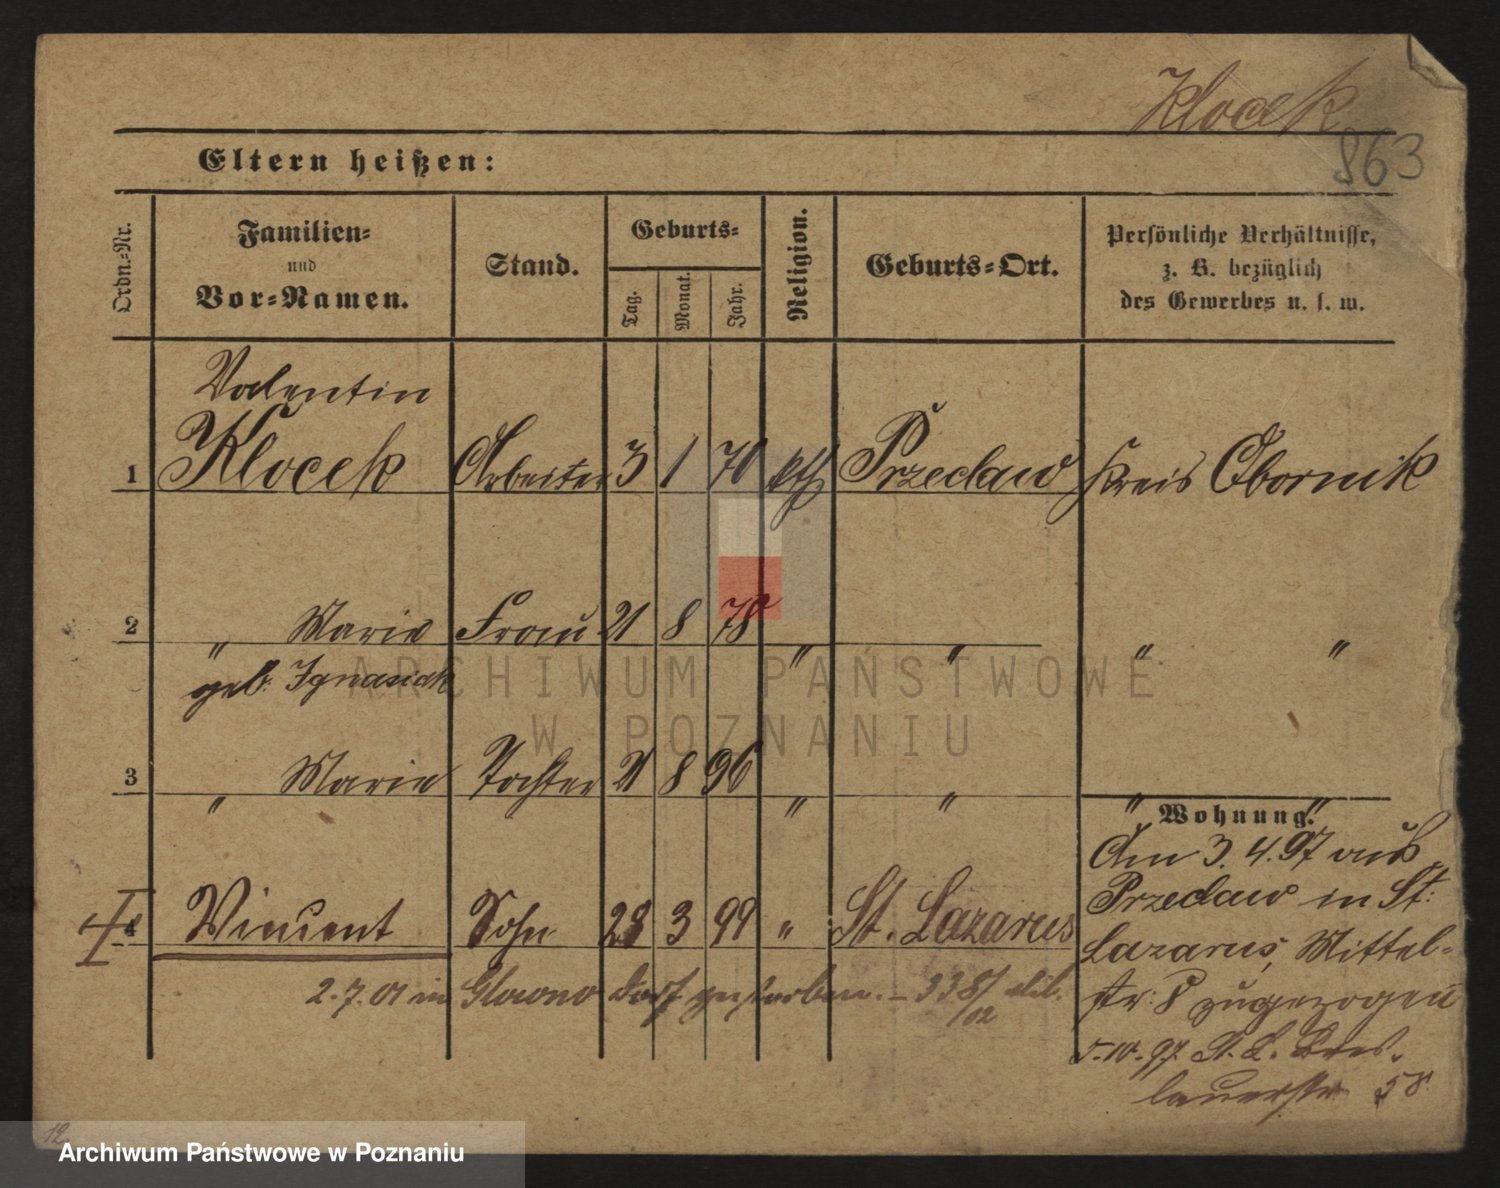 Klocek
863
Eltern heißen:
Ordn.-Nr.
Familien-
und
Vor-Namen.
Stand.
Geburts-
Tag.
Monat.
Jahr.
Religion.
Geburts-Ort.
Persönliche Verhältnisse,
z. B. bezüglich
des Gewerbes u. s. w.
Valentin
1 Klocek Arbeiter 3 1 70 kth Przeclaw Kreis Obornik
2 " Marie Frau 21 8 78 " " " "
geb. Ignasiak
3 " Marie Tochter 21 8 96 " " " "
Wohnung.
Am 3.4.97 aus
Przeclaw in St.
Lazarus, Mittel-
str. 8 zugezogen
5.10.97. St. L. Bres-
lauerstr 58
4 Vincent Sohn 28 3 99 " St. Lazarus
2.7.01 in Glowno dorf gestorben. – 338/02
12
ARCHIWUM PAŃSTWOWE
W POZNANIU
Archiwum Państwowe w Poznaniu